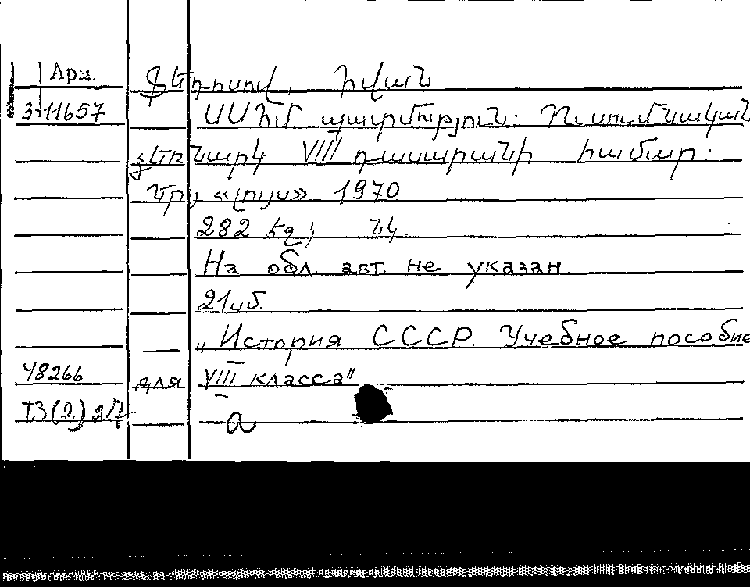 Арм. Ֆեդոսով, Իվան
3-11657 ՍՍՀՄ պատմություն: Ուսումնական
ձեռնարկ VIII դասարանի համար:
Եր., «Լույս» 1970
282 էջ; նկ.
На обл. авт. не указан.
21 սմ.
„История СССР. Учебное пособие
48266 для VIII класса"
a